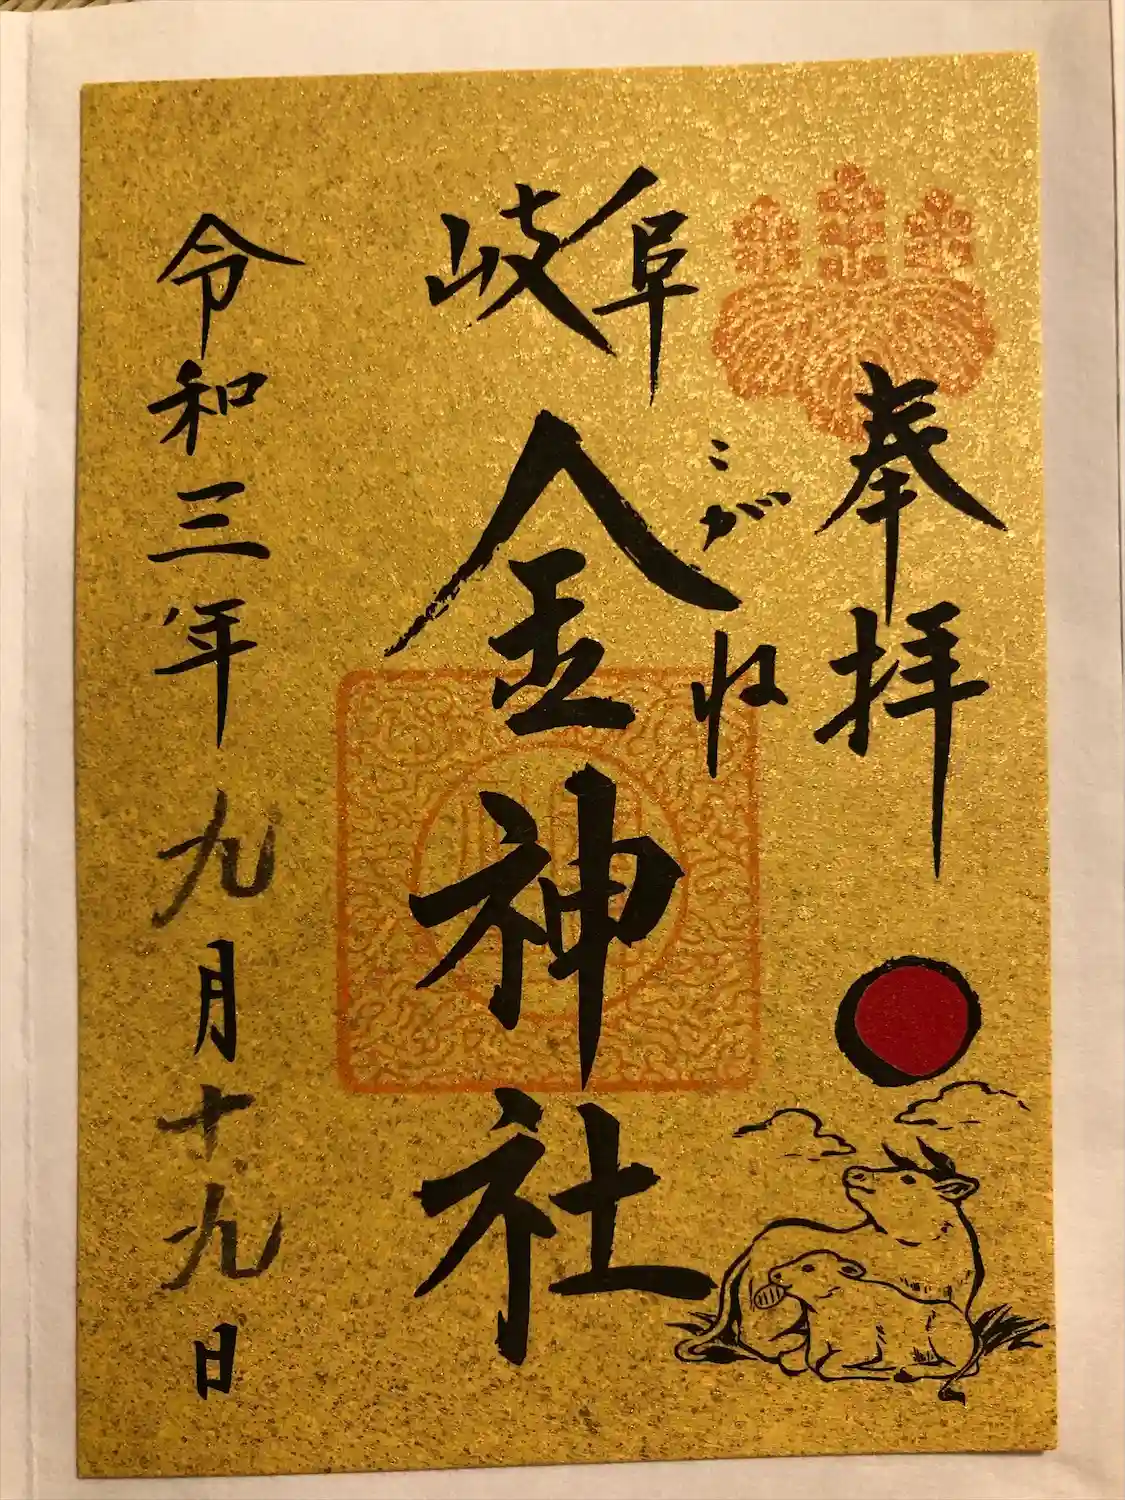 奉拝
岐阜
こがね
金神社
令和三年九月十九日